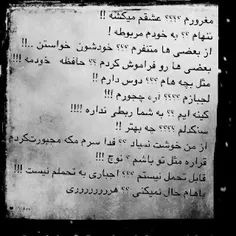 مغرورم ؟؟؟؟ عشقم میکشه !!
تنهام ؟؟ به خودم مربوطه !
از بعضی ها متنفرم ؟؟؟ خودشون خواستن ..!!
بعضی ها رو فراموش کردم ؟؟ حافظه خودمه !!!!
مثل بچه هام ؟؟؟ دوس دارم !!
لجبازم ؟؟؟؟ اره جججورم !!!
کینه ایم ؟؟ به شما ربطی نداره !!!!
سنگدلم ؟؟؟؟ چه بهتر !!
از من خوشت نمیاد ؟؟ فدا سرم مگه مجبورت کردم
قراره مثل تو باشم ؟ نوچ !!!
قابل تحمل نیستم ؟؟؟ اجباری به تحملم نیست !!!
باهام حال نمیکنی ؟؟ هرررررررری